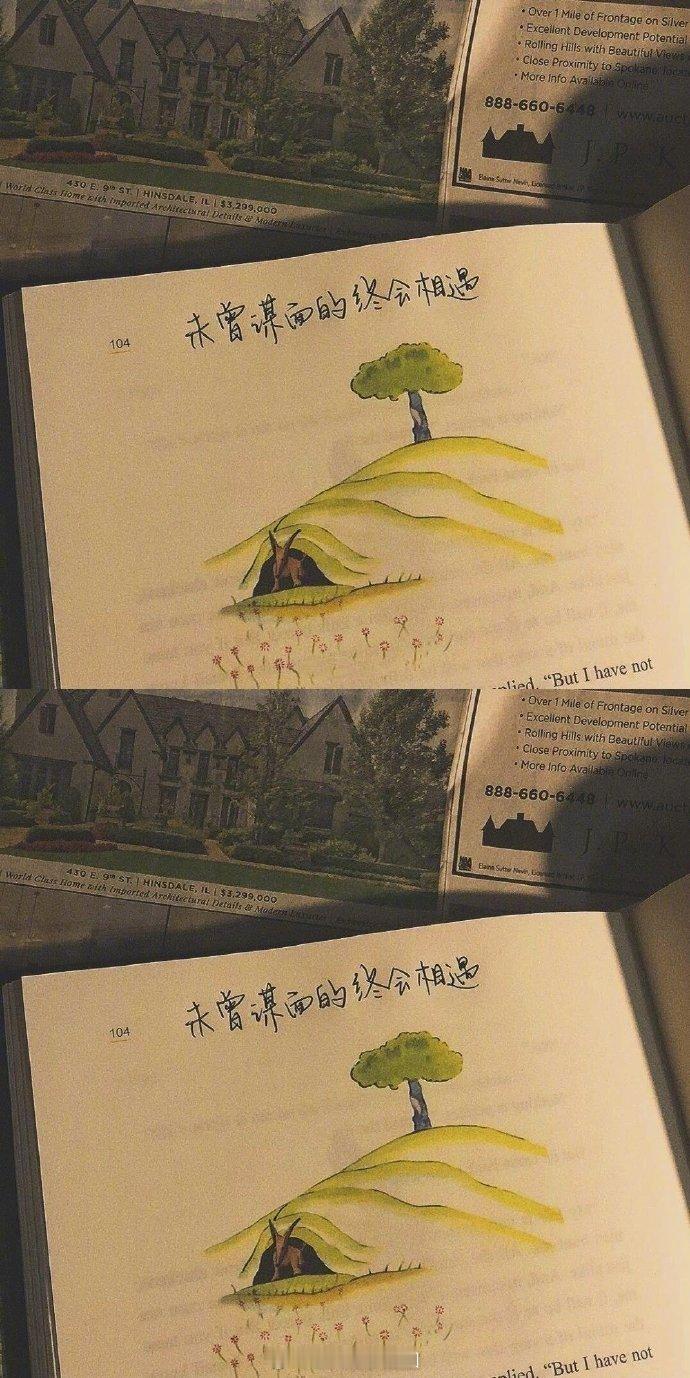 • Over 1 Mile of Frontage on Silver
• Excellent Development Potential
• Rolling Hills with Beautiful Views
• Close Proximity to Spokane
• More Info Available Online
888-660-6448 | www.auct
J. P. K
Elaine Sutter Nevin, Licensed
430 E. 9th ST. | HINSDALE, IL | $3,299,000
World Class Home with Imported Architectural Details & Modern
未曾谋面的终会相遇
104
plied. “But I have not
• Over 1 Mile of Frontage on Silver
• Excellent Development Potential
• Rolling Hills with Beautiful Views
• Close Proximity to Spokane
• More Info Available Online
888-660-6448 | www.auct
J. P. K
Elaine Sutter Nevin, Licensed
430 E. 9th ST. | HINSDALE, IL | $3,299,000
World Class Home with Imported Architectural Details & Modern
未曾谋面的终会相遇
104
plied. “But I have not